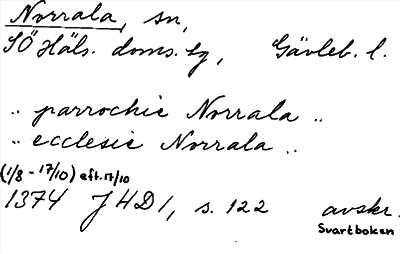 Norrala, sn,
SÖ Häls. doms. sg, Gävleb. l.
.. parrochie Norrala ..
.. ecclesie Norrala ..
(1/8 - 17/10) eft. 17/10
1374 JHD 1, s. 122 avskr.
Svartboken